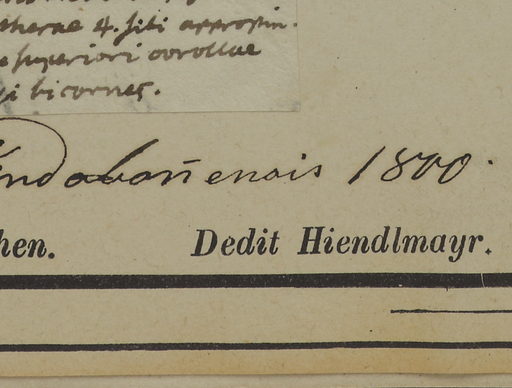 therae 4. sibi approxin.
superiori corollae
bicornes.
Vindobonensis 1800.
hen. Dedit Hiendlmayr.